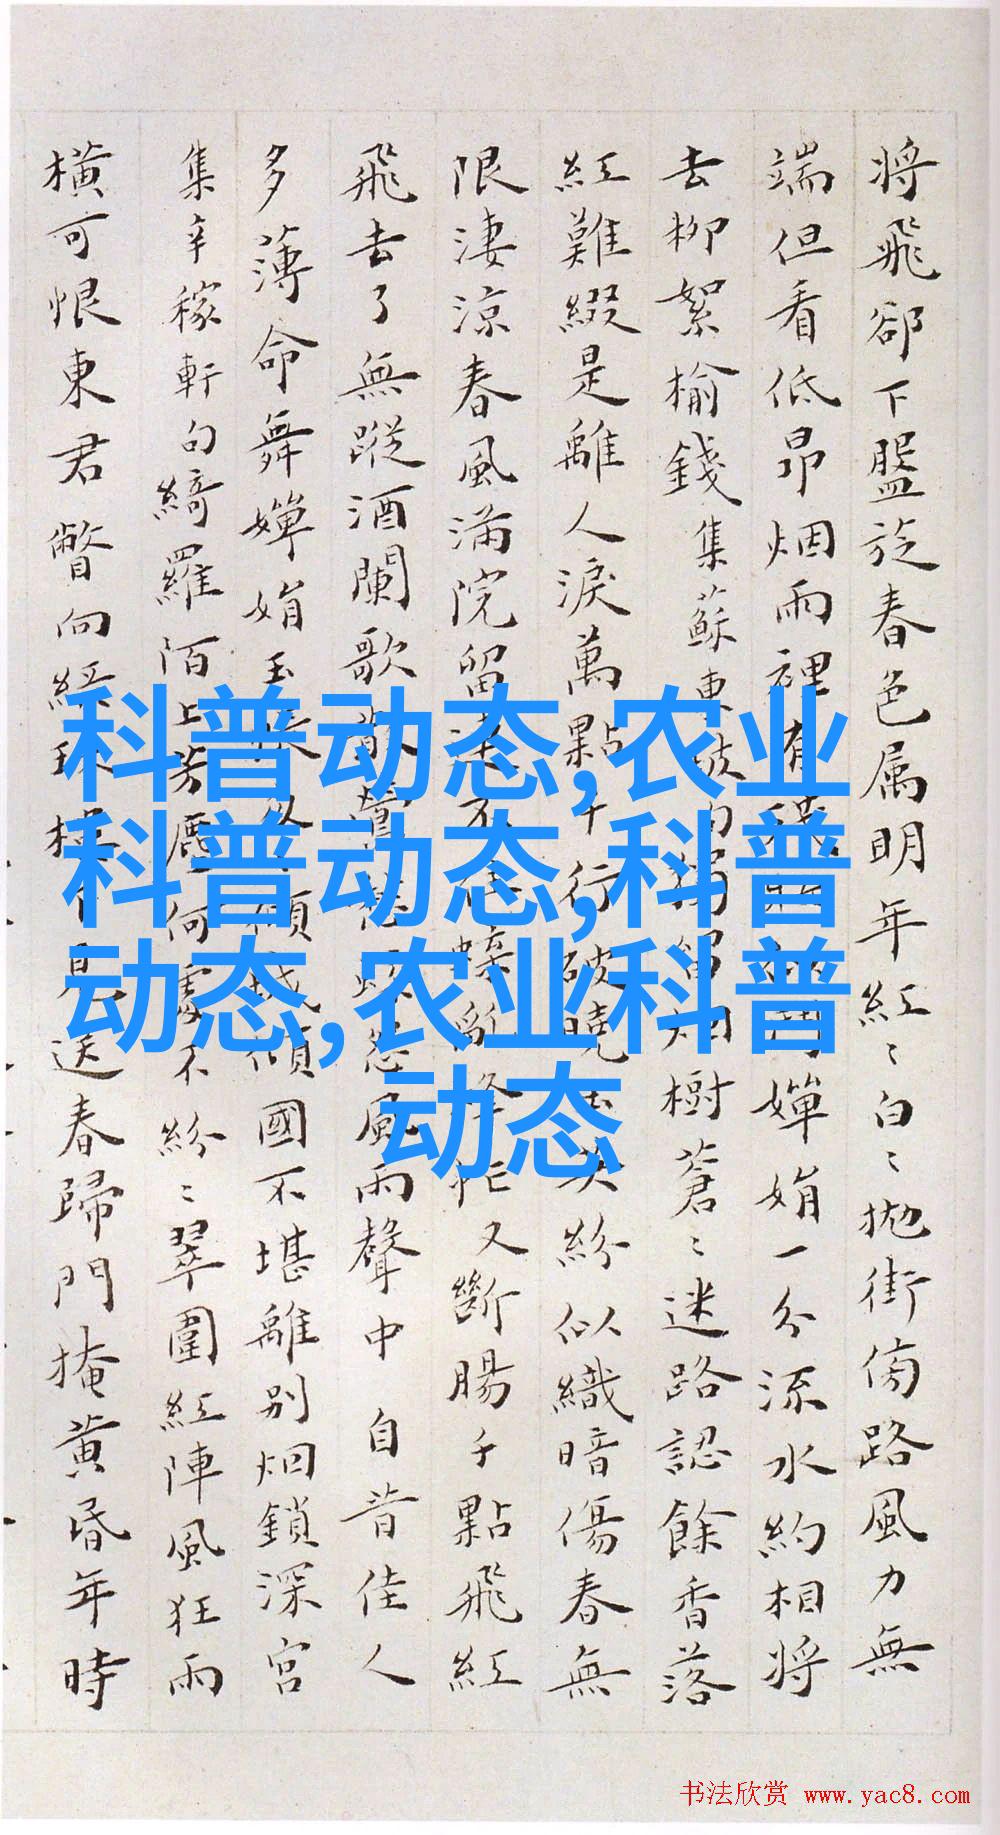 將飛卻下盤旋春色属明年紅〻白〻拋街傍路風力無
端但看低昂烟雨裡有嬋娟一分流水約相將
去柳絮榆錢集蘇東坡句烟樹蒼〻迷路認餘香落
紅難綴是離人淚萬點千行破曉英紛似織暗傷春無
限淒涼春風滿院留不忙又斷腸千點飛紅
飛去了無蹤酒闌歌散怨風雨聲中 自昔佳人
多薄命舞嬋娟玉傾城傾國不堪離別烟鎖深宮
集辛稼軒句綺羅陌上芳塵何處不紛〻翠圍紅陣風狂雨
橫可恨東君瞥向送春歸門掩黃昏年時
科普动态,农业
科普动态,科普
动态,农业科普
动态
书法欣赏 www.yac8.com